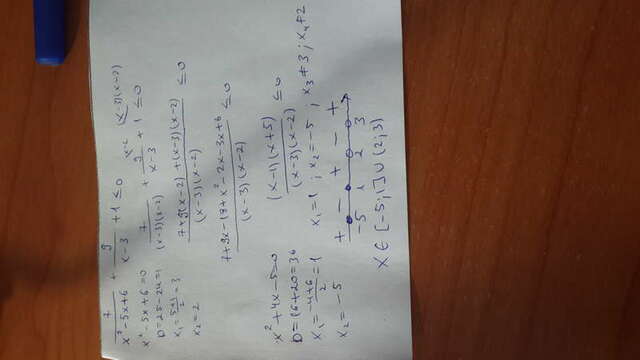 7/(x²-5x+6) + 9/(x-3) + 1 ≤ 0
x-2 (x-3)(x-2)
x²-5x+6=0
D=25-24=1
x₁=(5+1)/2=3
x₂=2
7/((x-3)(x-2)) + 9/(x-3) + 1 ≤ 0
(7+9(x-2)+(x-3)(x-2))/((x-3)(x-2)) ≤ 0
(7+9x-18+x²-2x-3x+6)/((x-3)(x-2)) ≤ 0
x²+4x-5=0
D=16+20=36
x₁=(-4+6)/2=1
x₂=-5
((x-1)(x+5))/((x-3)(x-2)) ≤ 0
x₁=1 ; x₂=-5 ; x₃≠3 ; x₄≠2
+ - + - +
-5 1 2 3
X∈[-5;1]∪(2;3)